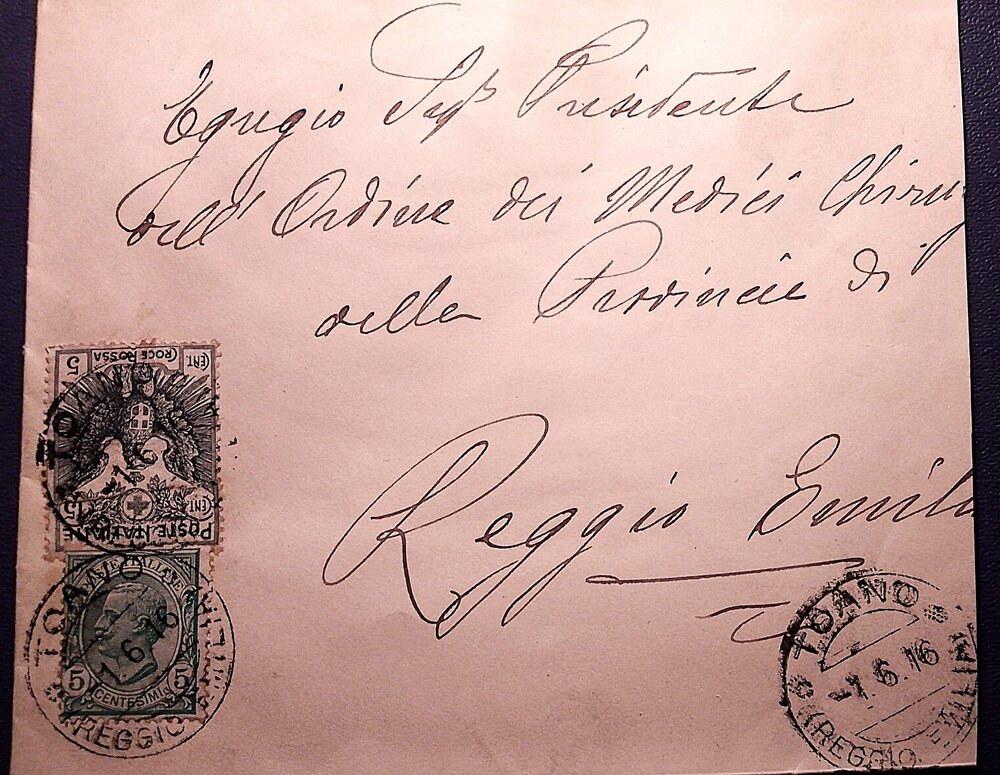 Egregio Sigr Presidente
dell' Ordine dei Medici Chirur
della Provincia di
Reggio Emilia
5 CROCE ROSSA CENT.
TOANO
15 CENT.
POSTE ITALIANE
POSTE ITALIANE
TOANO
1.6.16
5 5
CENTESIMI
(REGGIO EMILIA)
TOANO
-1.6.16
(REGGIO EMILIA